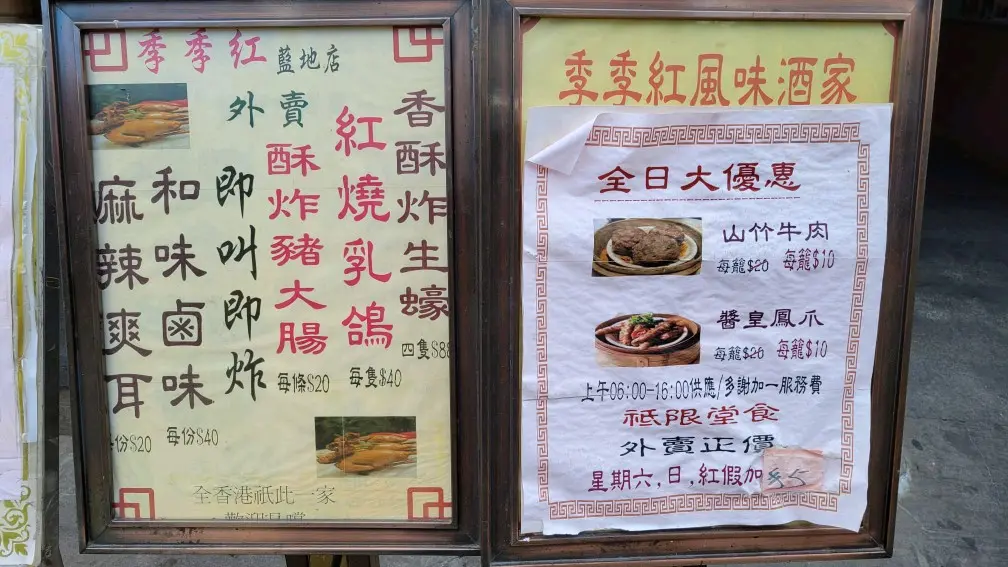 季季紅 藍地店
外賣
香酥炸生蠔
四隻$88
紅燒乳鴿
每隻$40
酥炸豬大腸
每條$20
即叫即炸
和味鹵味
每份$40
麻辣爽耳
每份$20
全香港祇此一家
歡迎品嚐
季季紅風味酒家
全日大優惠
山竹牛肉
每籠$20 每籠$10
醬皇鳳爪
每籠$20 每籠$10
上午06:00-16:00供應/多謝加一服務費
祗限堂食
外賣正價
星期六,日,紅假加$5